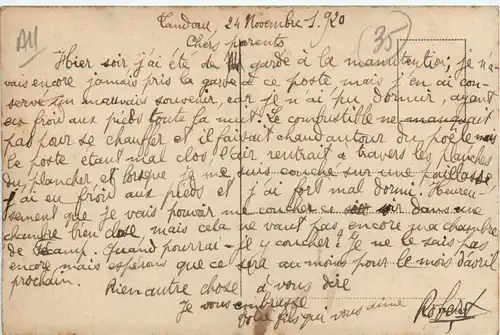 Landau, 24 Novembre 1920
AH
35
Chers parents
Hier soir j'ai été de garde à la manutention; je n'a-
vais encore jamais pris la garde à ce poste mais j'en ai con-
servé un mauvais souvenir, car je n'ai pu dormir, ayant
eu froid aux pieds toute la nuit. Le combustible ne manquait
pas pour se chauffer et il faisait chaud autour du poêle mais
le poste étant mal clos l'air rentrait à travers les planches
du plancher et lorsque je me suis couché sur une paillasse
j'ai eu froid aux pieds et j'ai fort mal dormi. Heureu-
sement que je vais pouvoir me coucher ce soir dans une
chambre bien close mais cela ne vaut pas encore ma chambre
de Fécamp. Quand pourrai-je y coucher? je ne le sais pas
encore mais espérons que ce sera au moins pour le mois d'avril
prochain.
Rien autre chose à vous dire
Je vous embrasse
Votre fils qui vous aime
Robert